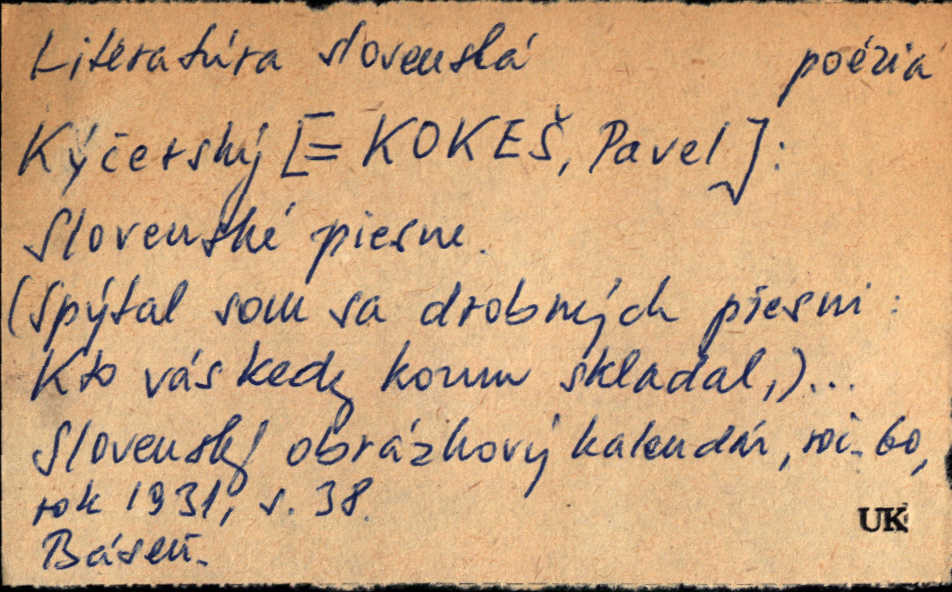 Literatúra slovenská poézia
Kýčerský [= KOKEŠ, Pavel]:
Slovenské piesne.
(Spýtal som sa drobných piesni:
Kto vás kedy komu skladal,)...
Slovenský obrázkový kalendár, roč. 60,
rok 1931, s. 38.
UK
Báseň.